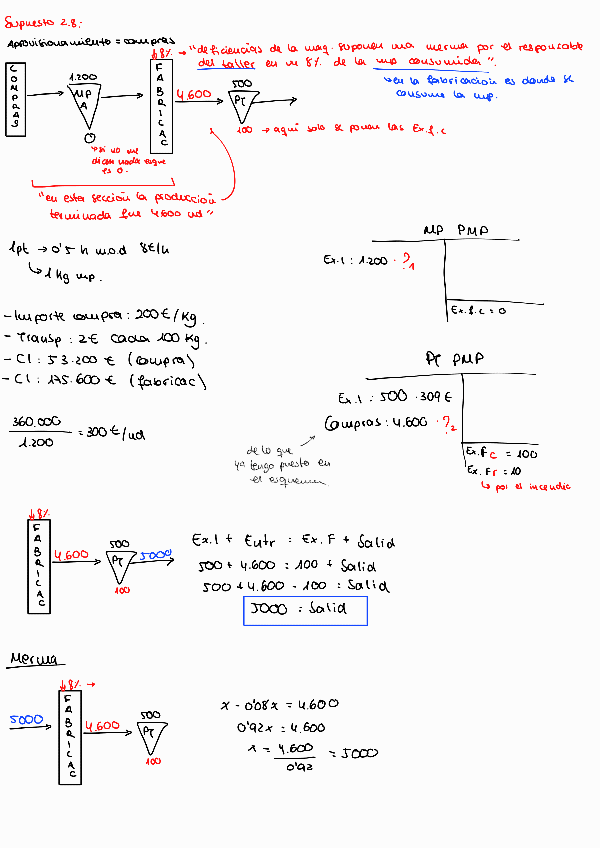 Supuesto 2.8:
Aprovisionamiento = compras
↓8% → "deficiencias de la maq. suponen una merma por el responsable
del taller en un 8% de la mp consumida".
↳ en la fabricación es donde se
consume la mp.
COMPRAS
1.200
MP
A
0
FABRICAC
4.600
500
PT
100 → aquí solo se ponen las Ex.f.c
*si no me
dicen nada es que
es 0.
"en esta sección la producción
terminada fue 4.600 ud"
1pt → 0'5 h mod 8€/h
↳ 1 Kg mp.
MP PMP
Ex.I : 1.200 · ?1
Ex.f.c = 0
- Importe compra : 200€/Kg.
- Transp : 2€ cada 100 Kg.
- CI : 53.200 € (compra)
- CI : 175.600 € (fabricac)
PT PMP
Ex.I : 500 · 309€
Compras : 4.600 · ?2
Ex.Fc = 100
Ex.Fr = 10
↳ por el incendio
360.000
1.200
= 300€/ud
de lo que
ya tengo puesto en
el esquema
↓8%
FABRICAC
4.600
500
PT
5000
100
Ex.I + Entr = Ex.F + Salid
500 + 4.600 = 100 + Salid
500 + 4.600 - 100 = Salid
5000 = Salid
Merma
↓8% →
5000
FABRICAC
4.600
500
PT
100
x - 0'08x = 4.600
0'92x = 4.600
x = 4.600 / 0'92 = 5000